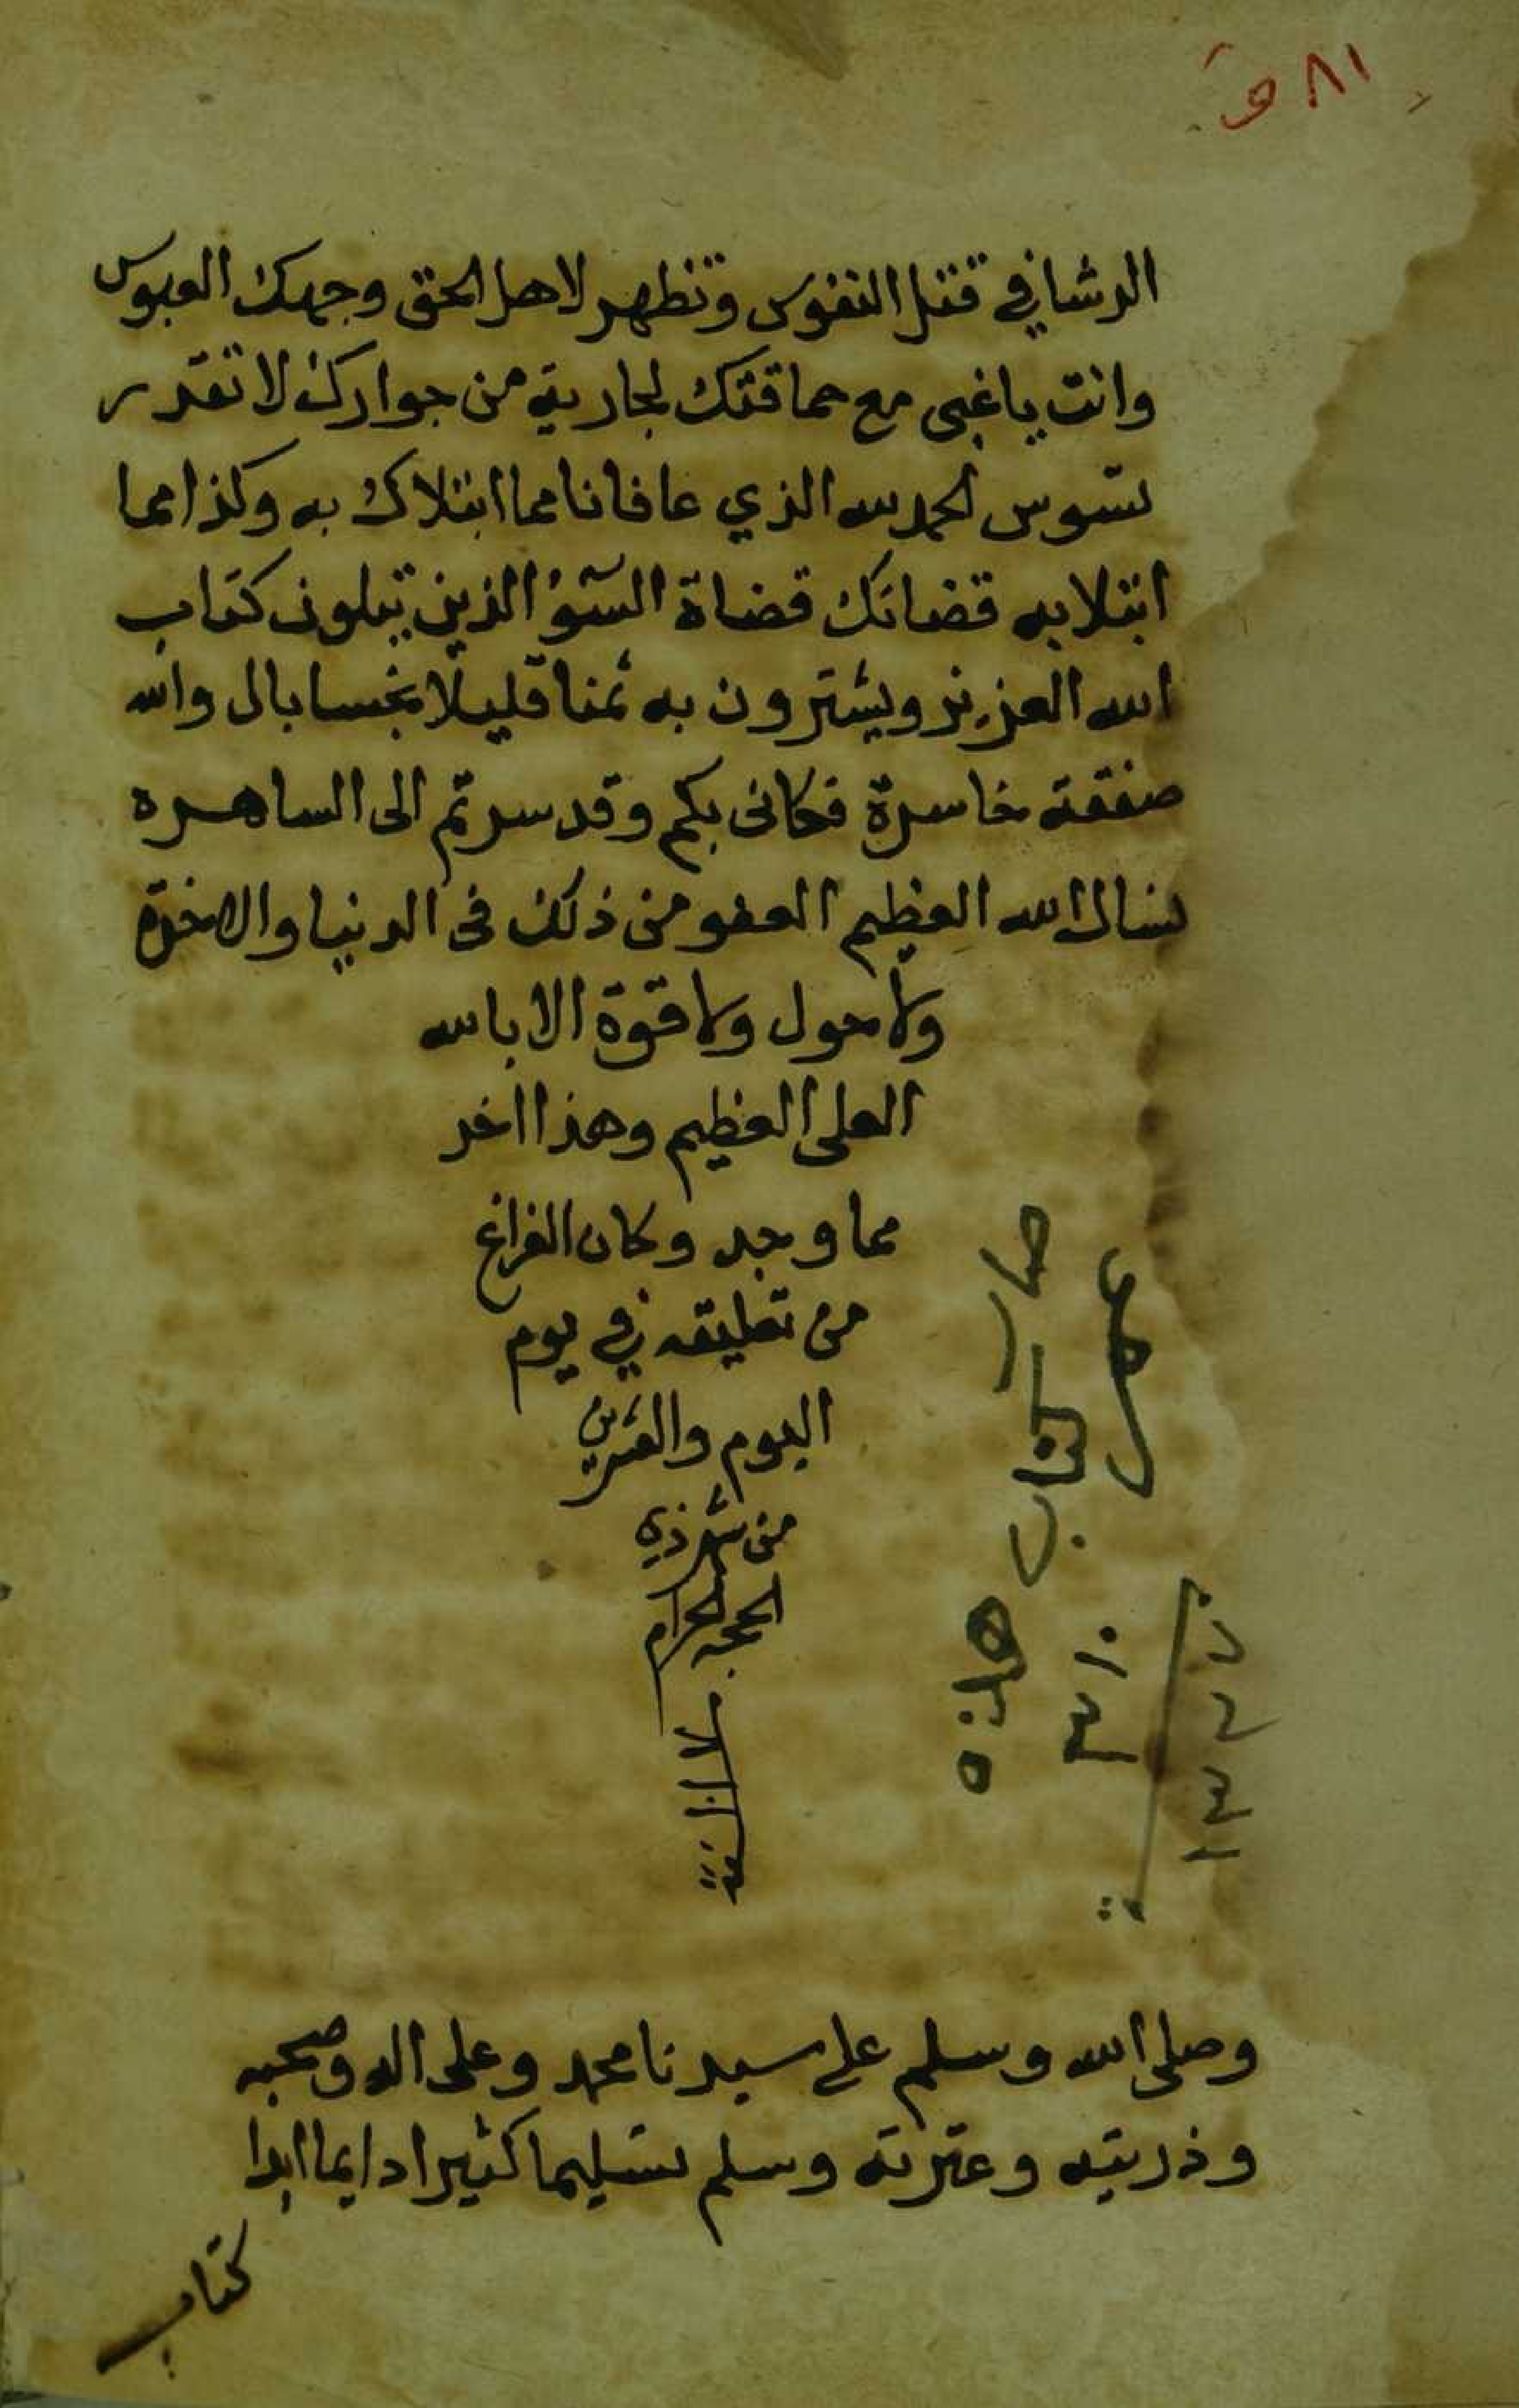 ٨١ ق
الرشا في قتل النفوس وتظهر لاهل الحق وجهك العبوس
وانت يا غبى مع حماقتك لجارية من جوارك لا تقدر
تسوس الحمد لله الذي عافانا مما ابتلاك به وكذا مما
ابتلا به قضاتك قضاة السوء الذين يتلون كتاب
الله العزيز ويشترون به ثمنا قليلا بخسا بال والله
صفقة خاسرة فكانى بكم وقد سرتم الى الساهره
نسال الله العظيم العفو من ذلك فى الدنيا والاخرة
ولا حول ولا قوة الا بالله
العلى العظيم وهذا اخر
مما وجد وكان الفراغ
من تعليقه في يوم
اليوم والعشرين
من شهر ذي
الحجة الحرام
وصلى الله وسلم على سيدنا محمد وعلى اله وصحبه
وذريته وعترته وسلم تسليما كثيرا دايما ابدا
كتاب